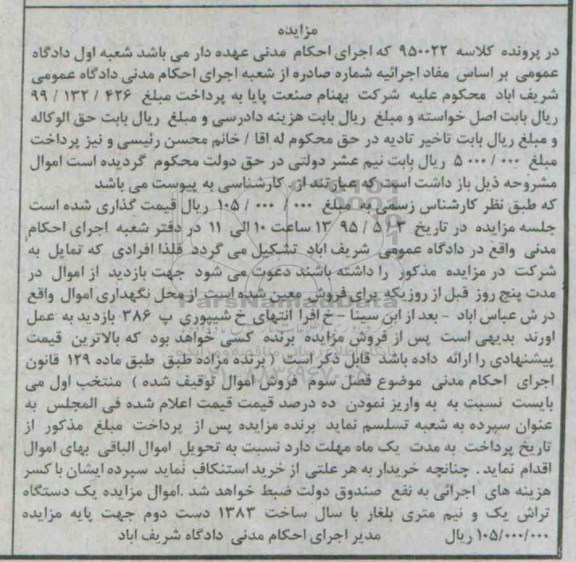 مزایده
در پرونده کلاسه ۹۵۰۰۲۲ که اجرای احکام مدنی عهده دار می باشد شعبه اول دادگاه
عمومی بر اساس مفاد اجرائیه شماره صادره از شعبه اجرای احکام مدنی دادگاه عمومی
شریف اباد محکوم علیه شرکت بهنام صنعت پایا به پرداخت مبلغ ۴۲۶ / ۱۳۲ / ۹۹
ریال بابت اصل خواسته و مبلغ ریال بابت هزینه دادرسی و مبلغ ریال بابت حق الوکاله
و مبلغ ریال بابت تاخیر تادیه در حق محکوم له اقا / خانم محسن رئیسی و نیز پرداخت
مبلغ ۰۰۰ / ۰۰۰ ۵ ریال بابت نیم عشر دولتی در حق دولت محکوم گردیده است اموال
مشروحه ذیل باز داشت است که عبارتند از، کارشناسی به پیوست می باشد
که طبق نظر کارشناس رسمی به مبلغ ۰۰۰ / ۰۰۰ / ۱۰۵ ریال قیمت گذاری شده است
جلسه مزایده در تاریخ ۳ / ۵ / ۹۵ ۱۳ ساعت ۱۰ الی ۱۱ در دفتر شعبه اجرای احکام
مدنی واقع در دادگاه عمومی شریف اباد تشکیل می گردد فلذا افرادی که تمایل به
شرکت در مزایده مذکور را داشته باشند دعوت می شود جهت بازدید از اموال در
مدت پنج روز قبل از روزیکه برای فروش معین شده است از محل نگهداری اموال واقع
در ش عباس اباد - بعد از ابن سینا - خ افرا انتهای خ شیپوری پ ۳۸۶ بازدید به عمل
اورند بدیهی است پس از فروش مزایده برنده کسی خواهد بود که بالاترین قیمت
پیشنهادی را ارائه داده باشد قابل ذکر است ( برنده مزاده طبق طبق ماده ۱۲۹ قانون
اجرای احکام مدنی موضوع فصل سوم فروش اموال توقیف شده ) منتخب اول می
بایست نسبت به به واریز نمودن ده درصد قیمت قیمت اعلام شده فی المجلس به
عنوان سپرده به شعبه تسلسم نماید برنده مزایده پس از پرداخت مبلغ مذکور از
تاریخ پرداخت به مدت یک ماه مهلت دارد نسبت به تحویل اموال الباقی بهای اموال
اقدام نماید. چنانچه خریدار به هر علتی از خرید استنکاف نماید سپرده ایشان با کسر
هزینه های اجرائی به نفع صندوق دولت ضبط خواهد شد .اموال مزایده یک دستگاه
تراش یک و نیم متری بلغار با سال ساخت ۱۳۸۳ دست دوم جهت پایه مزایده
۱۰۵/۰۰۰/۰۰۰ ریال مدیر اجرای احکام مدنی دادگاه شریف اباد